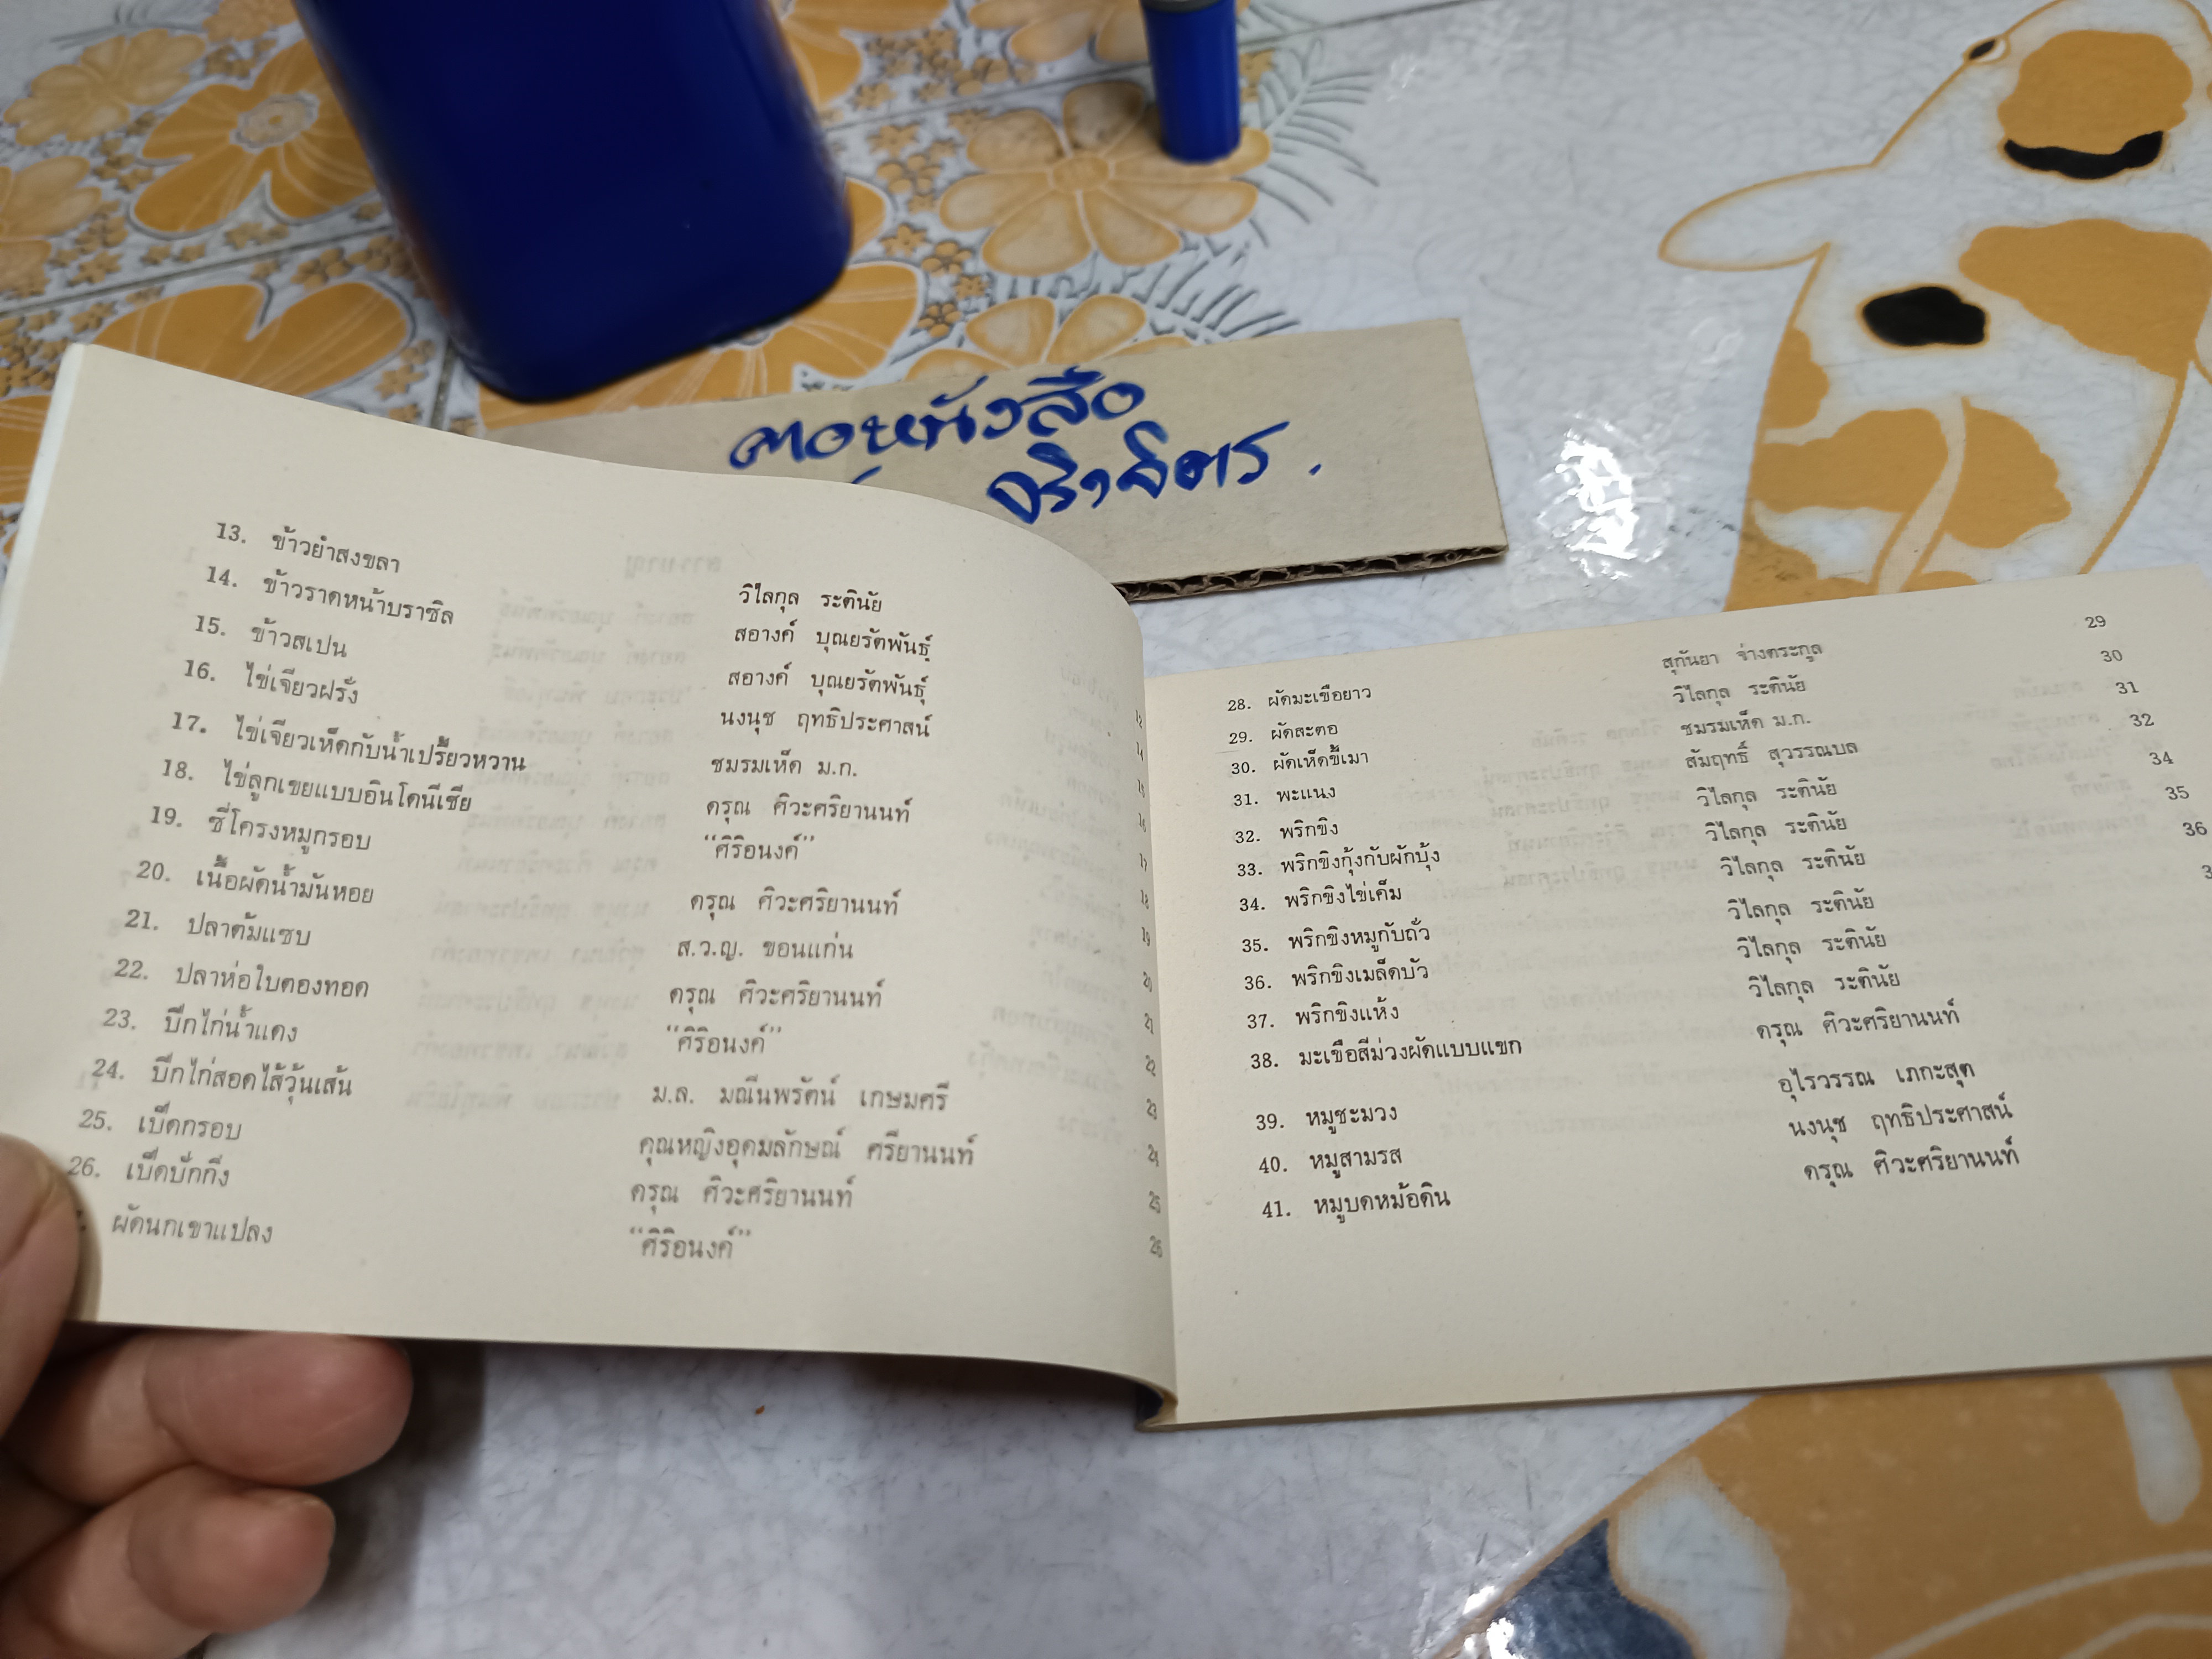 คอหนังสือ
จริงจิตร.
13. ข้าวยำสงขลา วิไลกุล ระตินัย 12
14. ข้าวราดหน้าบราซิล สอางค์ บุณยรัตพันธุ์ 14
15. ข้าวสเปน สอางค์ บุณยรัตพันธุ์ 15
16. ไข่เจียวฝรั่ง นงนุช ฤทธิประศาสน์ 16
17. ไข่เจียวเห็ดกับน้ำเปรี้ยวหวาน ชมรมเห็ด ม.ก. 17
18. ไข่ลูกเขยแบบอินโดนีเซีย ดรุณ ศิวะศริยานนท์ 18
19. ซี่โครงหมูกรอบ “ศิริอนงค์” 19
20. เนื้อผัดน้ำมันหอย ดรุณ ศิวะศริยานนท์ 20
21. ปลาต้มแซบ ส.ว.ญ. ขอนแก่น 21
22. ปลาห่อใบตองทอด ดรุณ ศิวะศริยานนท์ 22
23. ปีกไก่น้ำแดง “ศิริอนงค์” 23
24. ปีกไก่สอดไส้วุ้นเส้น ม.ล. มณีนพรัตน์ เกษมศรี 24
25. เป็ดกรอบ คุณหญิงอุดมลักษณ์ ศรียานนท์ 25
26. เป็ดปักกิ่ง ดรุณ ศิวะศริยานนท์ 26
ผัดนกเขาแปลง “ศิริอนงค์”
28. ผัดมะเขือยาว สุกันยา จ่างตระกูล 29
29. ผัดสะตอ วิไลกุล ระตินัย 30
30. ผัดเห็ดขี้เมา ชมรมเห็ด ม.ก. 31
31. พะแนง สัมฤทธิ์ สุวรรณบล 32
32. พริกขิง วิไลกุล ระตินัย 34
33. พริกขิงกุ้งกับผักบุ้ง วิไลกุล ระตินัย 35
34. พริกขิงไข่เค็ม วิไลกุล ระตินัย 36
35. พริกขิงหมูกับถั่ว วิไลกุล ระตินัย
36. พริกขิงเมล็ดบัว วิไลกุล ระตินัย
37. พริกขิงแห้ง วิไลกุล ระตินัย
38. มะเขือสีม่วงผัดแบบแขก ดรุณ ศิวะศริยานนท์
39. หมูชะมวง อุไรวรรณ เภกะสุต
40. หมูสามรส นงนุช ฤทธิประศาสน์
41. หมูบดหม้อดิน ดรุณ ศิวะศริยานนท์